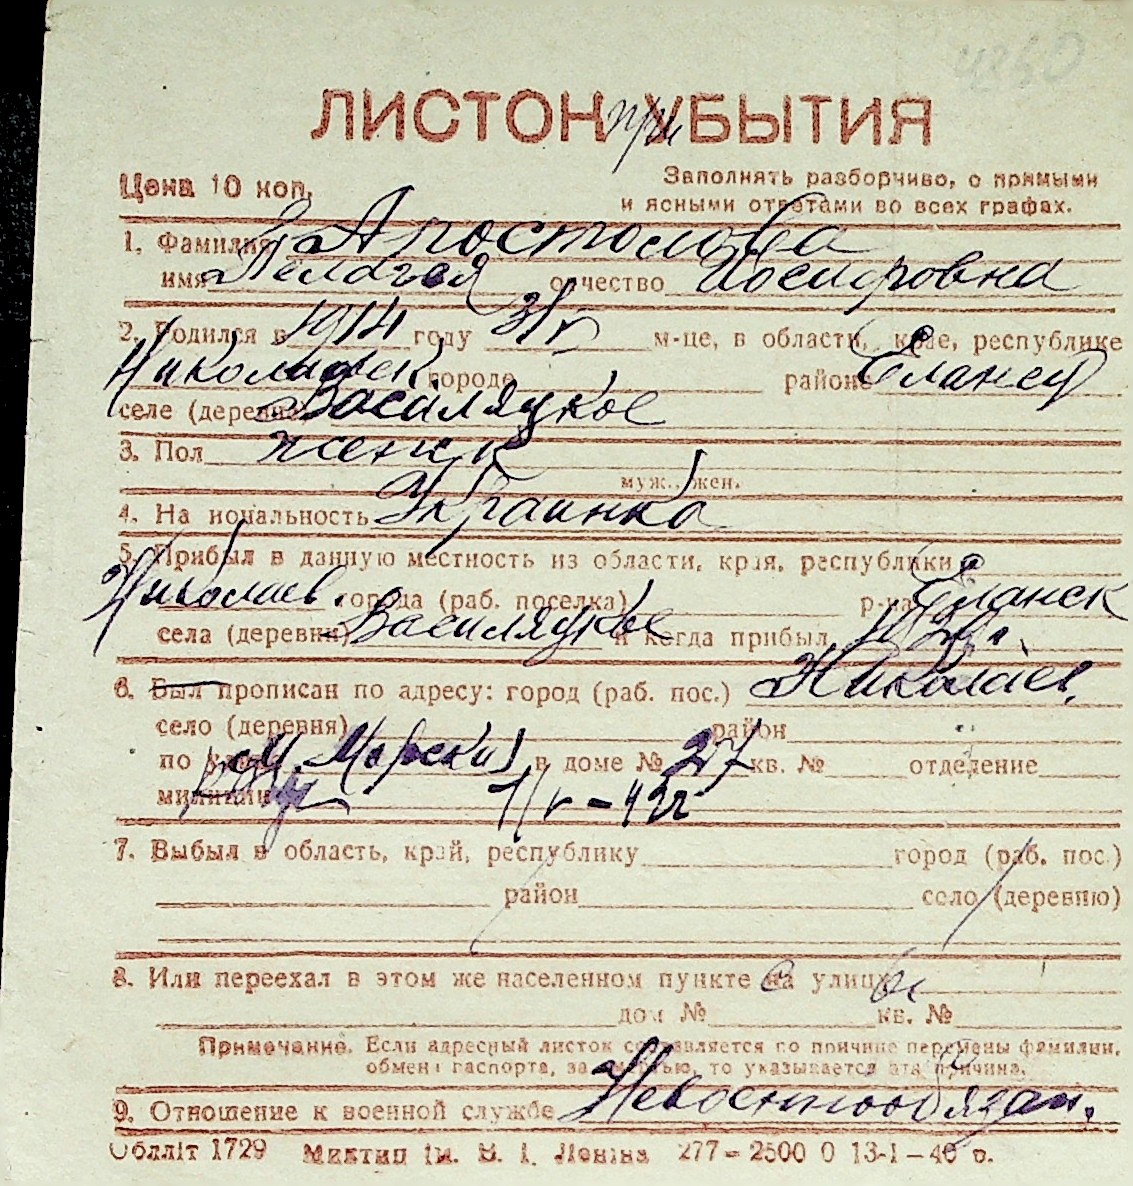 4240
ЛИСТОК при УБЫТИЯ
Цена 10 коп.
Заполнять разборчиво, с прямыми
и ясными ответами во всех графах.
1. Фамилия Апостолова
имя Пелагея отчество Иосифовна
2. Родился в 1914 году 3/V м-це, в области, крае, республике
Николаевск городе районе Еланец
селе (деревне) Василяцкое
3. Пол женск
муж., жен.
4. Национальность Украинка
5. Прибыл в данную местность из области, края, республики
Николаев. города (раб. поселка) р-на Еланск
села (деревни) Василяцкое и когда прибыл
6. Был прописан по адресу: город (раб. пос.) Николаев,
село (деревня) район
по М. Морская в доме № 27 кв. № отделение
милиции
7. Выбыл в область, край, республику город (раб. пос.)
район село (деревню)
8. Или переехал в этом же населенном пункте с на улицы
дом № кв. №
Примечание. Если адресный листок составляется по причине перемены фамилии,
обмена паспорта, за смертью, то указывается эта причина.
9. Отношение к военной службе Невоеннообязан.
Обллiт 1729 Миктип iм. В. I. Ленiна 277–2500 0 13-1–40 р.